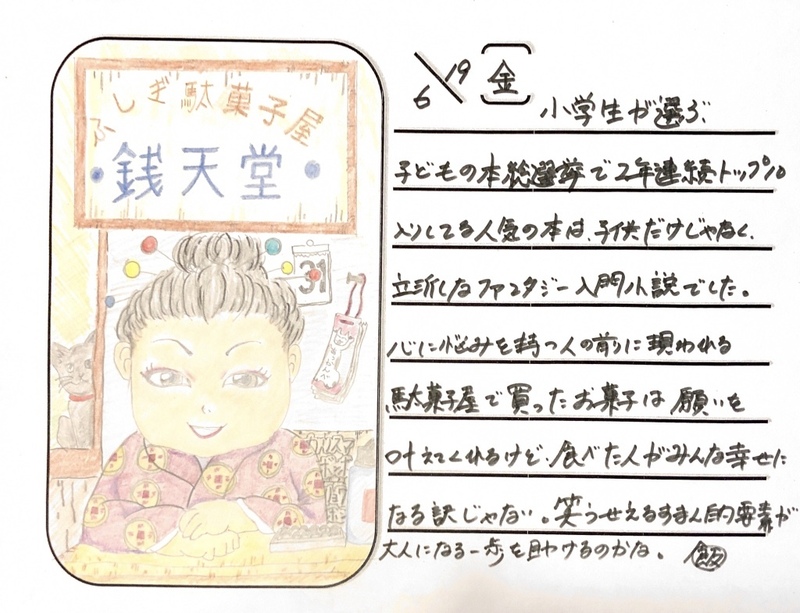 ふしぎ駄菓子屋
銭天堂
31
6/19 金
小学生が選ぶ
子どもの本総選挙で2年連続トップ10
入りしてる人気の本は、子供だけじゃなく、
立派なファンタジー入門小説でした。
心に悩みを持つ人の前に現われる
駄菓子屋で買ったお菓子は願いを
叶えてくれるけど、食べた人がみんな幸せに
なる訳じゃない。笑うせえるすまん的要素が
大人になる一歩を助けるのかな。 飯